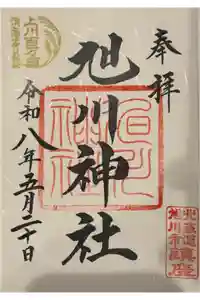 奉拝
旭川神社
令和八年五月二十日
上川百万石
北海道
旭川市鎮座